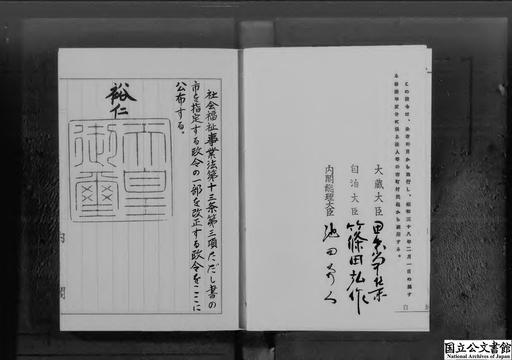 この政令は、公布の日から施行し、昭和三十八年二月一日の属す
る
大蔵大臣 田中角栄
自治大臣 篠田弘作
内閣総理大臣 池田勇人
社会福祉事業法第十三条第三項ただし書の
市を指定する政令の一部を改正する政令をここに
公布する。
裕仁
天皇御璽
内閣
国立公文書館
National Archives of Japan